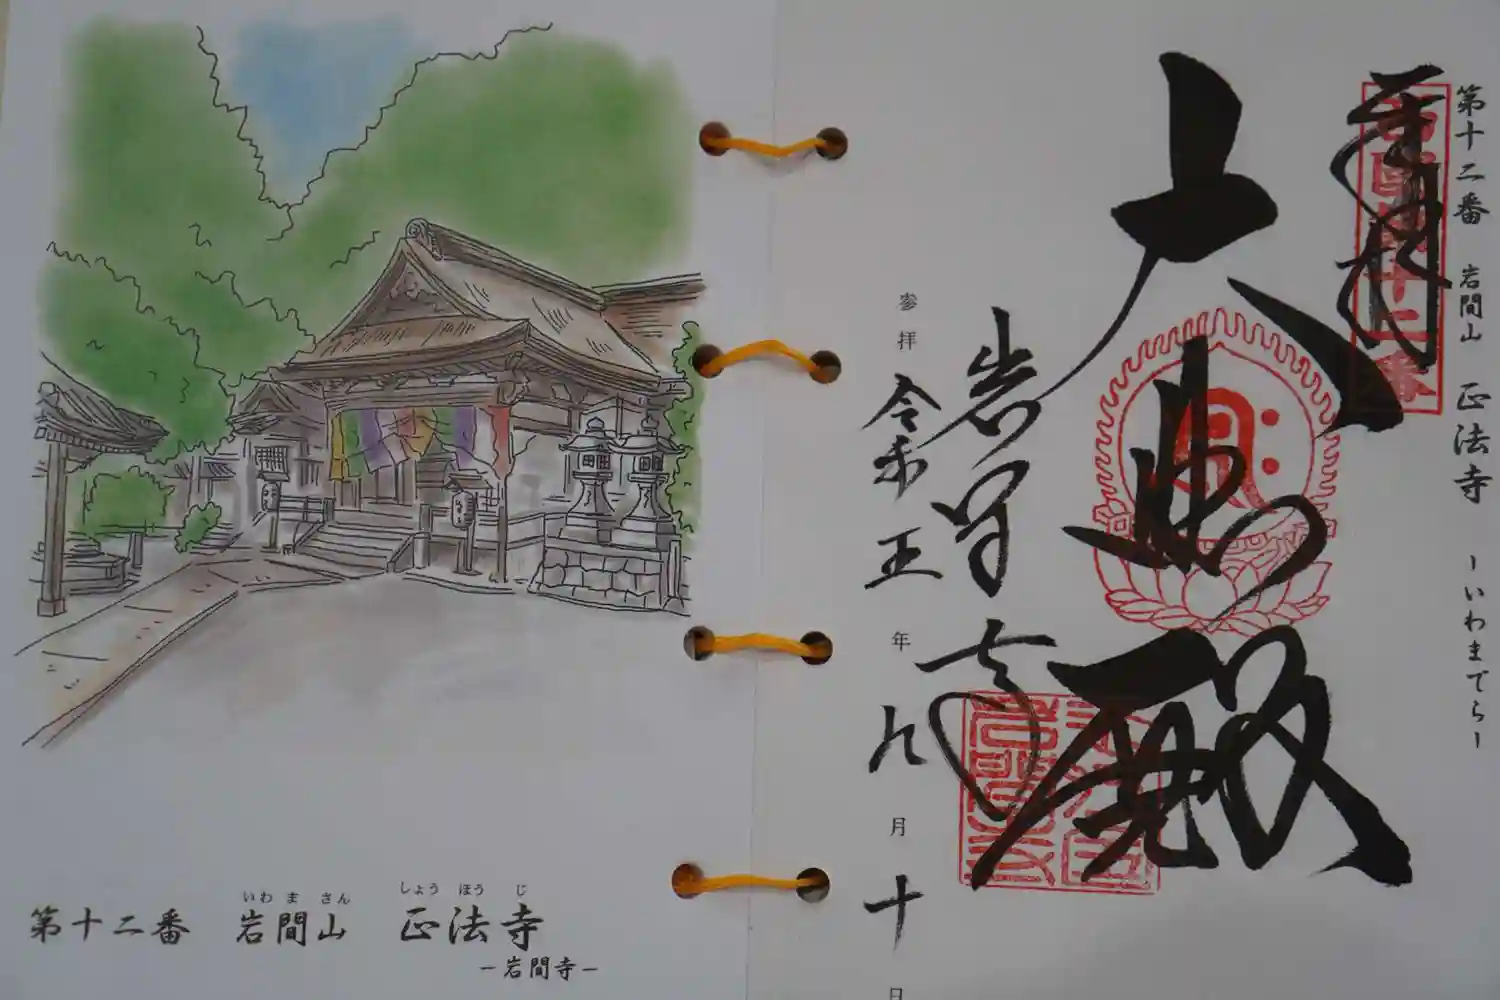 いわ ま さん しょう ほう じ
第十二番 岩間山 正法寺
－岩間寺－
第十二番 岩間山 正法寺 －いわまでら－
奉拝
大悲殿
岩間寺
参拝 令和五年九月十日